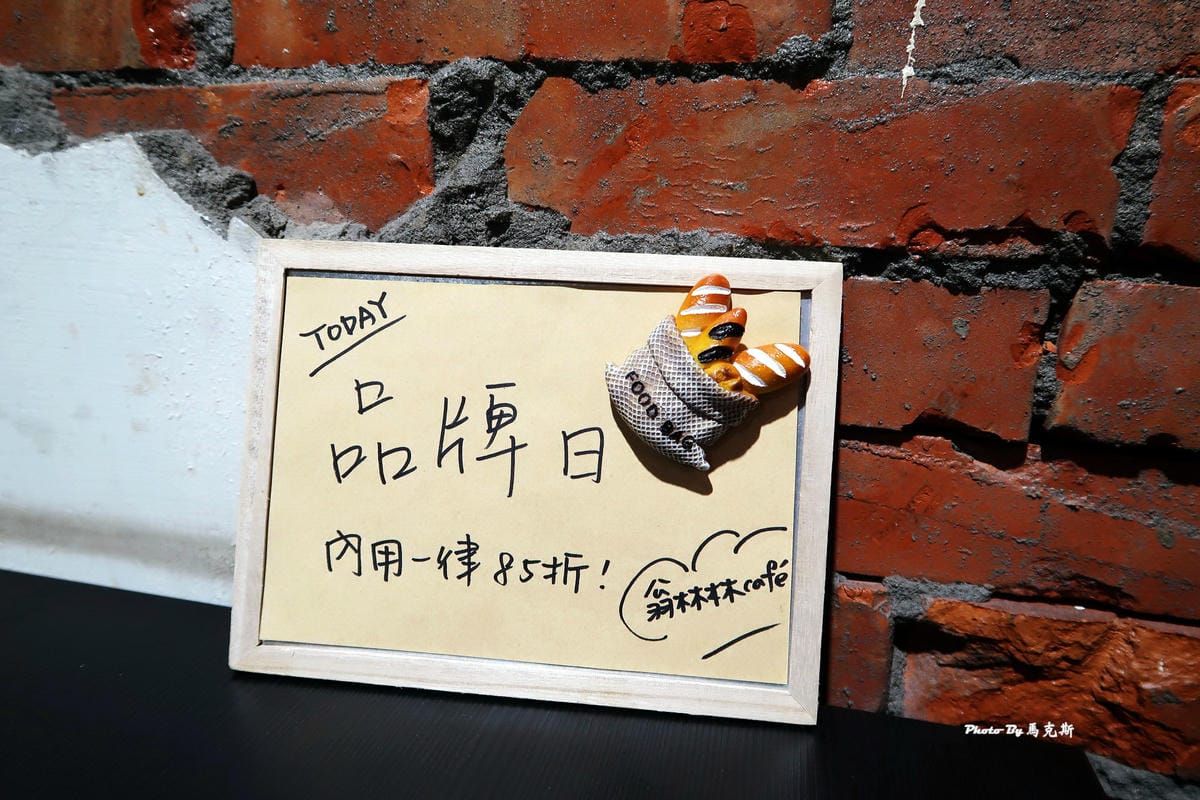 TODAY
品牌日
FOOD BAG
內用一律85折!
翁林林林café
Photo By 馬克斯